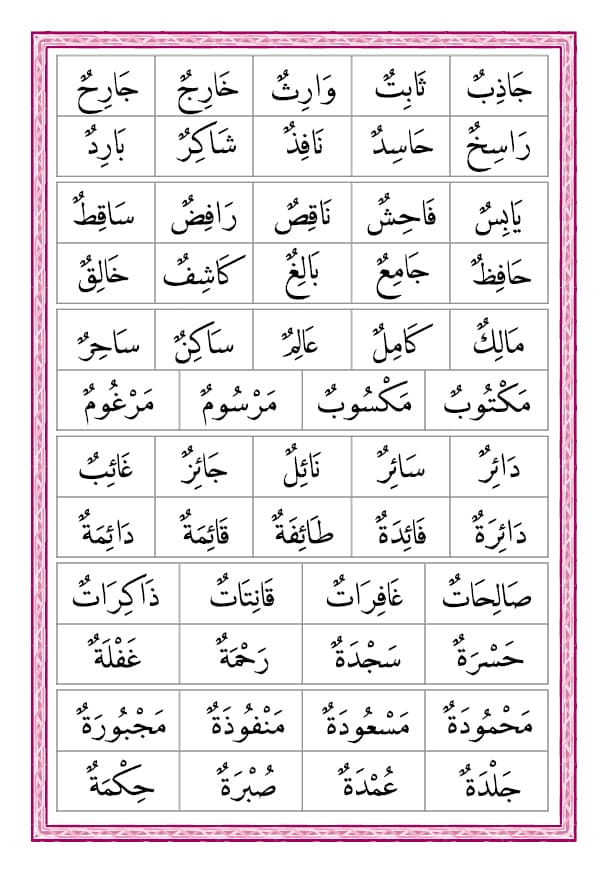 جَاذِبٌ ثَابِتٌ وَارِثٌ خَارِجٌ جَارِحٌ
رَاسِخٌ حَاسِدٌ نَافِذٌ شَاكِرٌ بَارِدٌ
يَابِسٌ فَاحِشٌ نَاقِصٌ رَافِضٌ سَاقِطٌ
حَافِظٌ جَامِعٌ بَالِغٌ كَاشِفٌ خَالِقٌ
مَالِكٌ كَامِلٌ عَالِمٌ سَاكِنٌ سَاحِرٌ
مَكْتُوبٌ مَكْسُوبٌ مَرْسُومٌ مَرْغُومٌ
دَائِرٌ سَائِرٌ نَائِلٌ جَائِزٌ غَائِبٌ
دَائِرَةٌ فَائِدَةٌ طَائِفَةٌ قَائِمَةٌ دَائِمَةٌ
صَالِحَاتٌ غَافِرَاتٌ قَانِتَاتٌ ذَاكِرَاتٌ
حَسْرَةٌ سَجْدَةٌ رَحْمَةٌ غَفْلَةٌ
مَحْمُودَةٌ مَسْعُودَةٌ مَنْفُوذَةٌ مَجْبُورَةٌ
جَلْدَةٌ عُمْدَةٌ صُبْرَةٌ حِكْمَةٌ